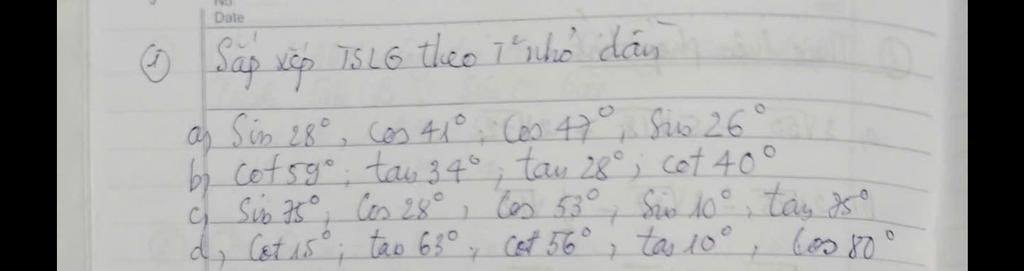 No.
Date
① Sắp xếp TSLG theo T² nhỏ dần
a) Sin 28°, Cos 41°, Cos 47°, Sin 26°
b) Cot 59°; tan 34°, tan 28°; cot 40°
c) Sin 75°, Cos 28°, Cos 53°, Sin 10°, tan 75°
d, Cot 15°; tan 63°, cot 56°, tan 10°, Cos 80°